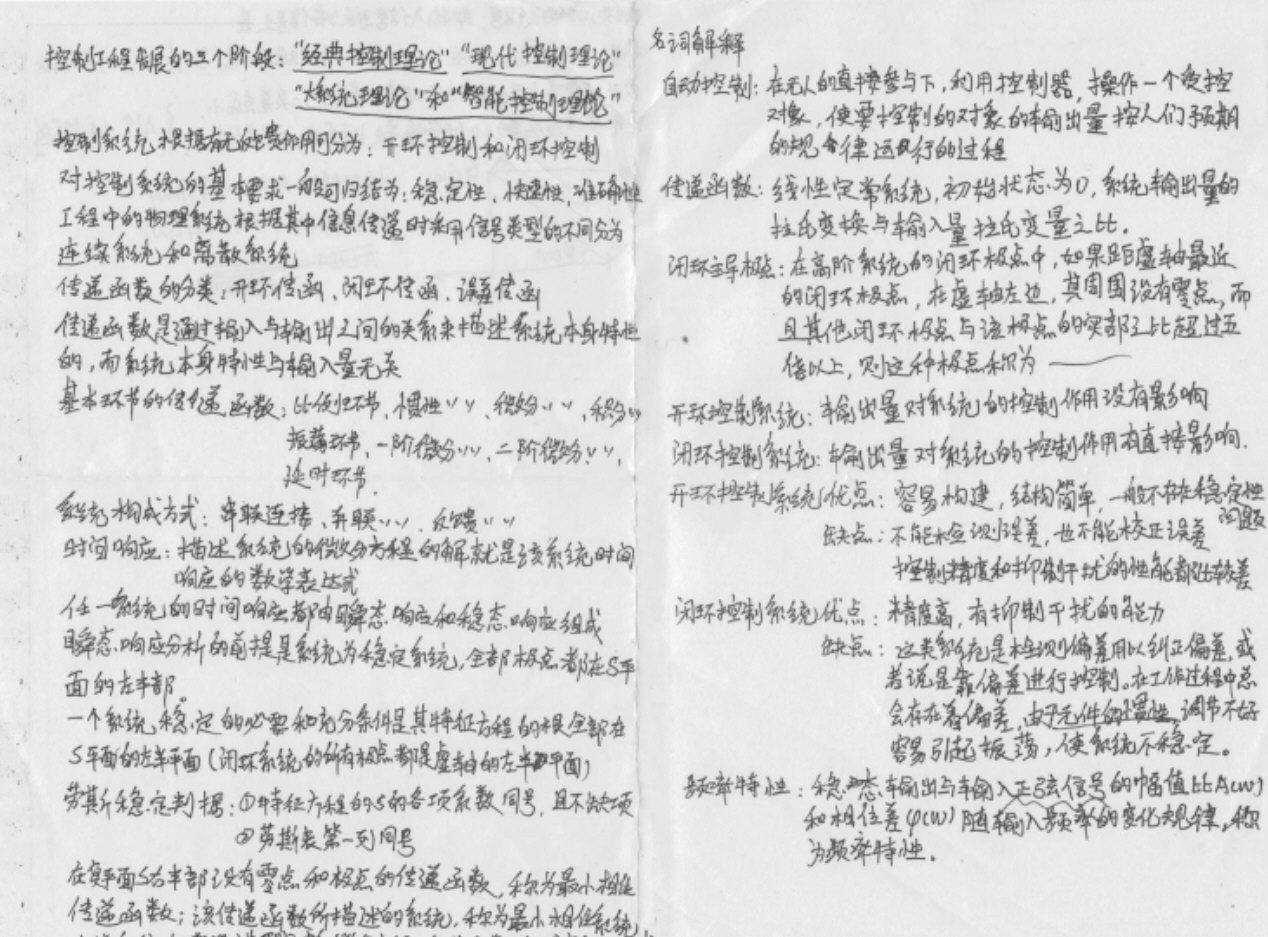 控制工程发展的三个阶段："经典控制理论" "现代控制理论"
"大系统理论"和"智能控制理论"
控制系统根据有无反馈作用可分为：开环控制和闭环控制
对控制系统的基本要求一般可归结为：稳定性，快速性，准确性
工程中的物理系统根据其中信息传递时采用信号类型的不同分为
连续系统和离散系统
传递函数的分类：开环传函、闭环传函、误差传函
传递函数是通过输入与输出之间的关系来描述系统本身特性
的，而系统本身特性与输入量无关
基本环节的传递函数：比例环节、惯性〃〃、微分〃〃、积分〃
振荡环节、一阶微分〃〃、二阶微分〃〃、
延时环节.
系统构成方式：串联连接、并联〃〃、反馈〃〃
时间响应：描述系统的微分方程的解就是该系统时间
响应的数学表达式
任一系统的时间响应都由瞬态响应和稳态响应组成
瞬态响应分析的前提是系统为稳定系统，全部极点都在S平
面的左半部。
一个系统稳定的必要和充分条件是其特征方程的根全部在
S平面的左半平面(闭环系统的所有极点都是虚轴的左半平面)
劳斯稳定判据：①特征方程的S的各项系数同号，且不缺项
②劳斯表第一列同号
在复平面S右半部没有零点和极点的传递函数，称为最小相位
传递函数；该传递函数所描述的系统，称为最小相位系统
名词解释
自动控制：在无人的直接参与下，利用控制器，操作一个受控
对象，使要控制的对象的输出量按人们预期
的规律运行的过程
传递函数：线性定常系统，初始状态为0，系统输出量的
拉氏变换与输入量拉氏变量之比.
闭环主导极点：在高阶系统的闭环极点中，如果距虚轴最近
的闭环极点，在虚轴左边，其周围没有零点，而
且其他闭环极点与该极点的实部之比超过五
倍以上，则这种极点称为——
开环控制系统：输出量对系统的控制作用没有影响
闭环控制系统：输出量对系统的控制作用有直接影响.
开环控制系统优点：容易构建，结构简单，一般不存在稳定性
问题
缺点：不能检测误差，也不能校正误差
控制精度和抑制干扰的性能都比较差
闭环控制系统优点：精度高，有抑制干扰的能力
缺点：这类系统是检测偏差用以纠正偏差，或
者说是靠偏差进行控制。在工作过程中总
会存在着偏差，由于元件的惯性，调节不好
容易引起振荡，使系统不稳定。
频率特性：稳态输出与输入正弦信号的幅值比A(w)
和相位差φ(w)随输入频率的变化规律，称
为频率特性.